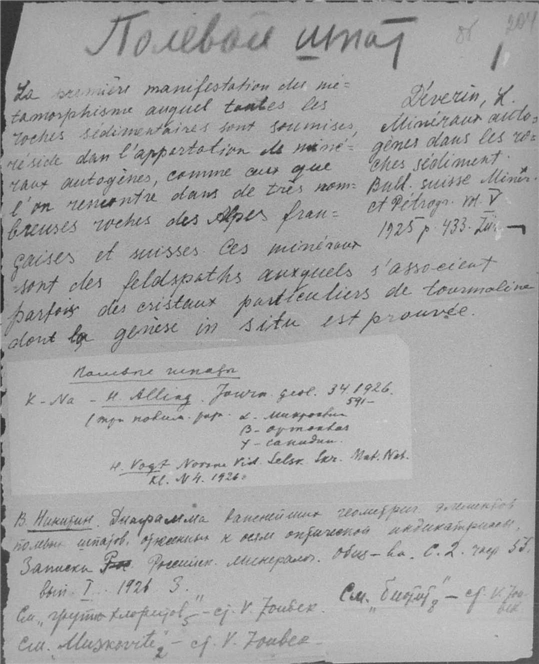 Полевой шпат
204
La première manifestation du mé-
tamorphisme auquel toutes les
roches sédimentaires sont soumises,
réside dan l'appartation de miné-
raux autogènes, comme ceux que
l'on rencontre dans de très nom-
breuses roches des Alpes fran-
çaises et suisses Ces minéraux
sont des feldspaths auxquels s'associent
parfois des cristaux particuliers de tourmaline
dont la genèse in situ est prouvée.
Déverin, L.
Minéraux auto-
gènes dans les ro-
ches sédiment.
Bull. suisse Minér.
et Pétrogr. V
1925 p. 433.
Полевые шпаты
K - Na - H. Alling. Journ. geol. 34. 1926.
591-
α - микроклин
β - ортоклаз
γ - санидин
Vogt Norske Vid. Selsk. Skr. Mat. Nat.
Kl. N 4. 1926
В. Никитин. Диаграмма важнейших геометрич. элементов
полевых шпатов, к осям оптической индикатрисы,
Записки Российск. Минералог. общ-ва. С. 2. 
вып. I. 1926
См. хлоритов" - cf. V. Zoubek.
См. "биотит" - cf. V. Zou-
bek
См. "Muskovite" - cf. V. Zoubek